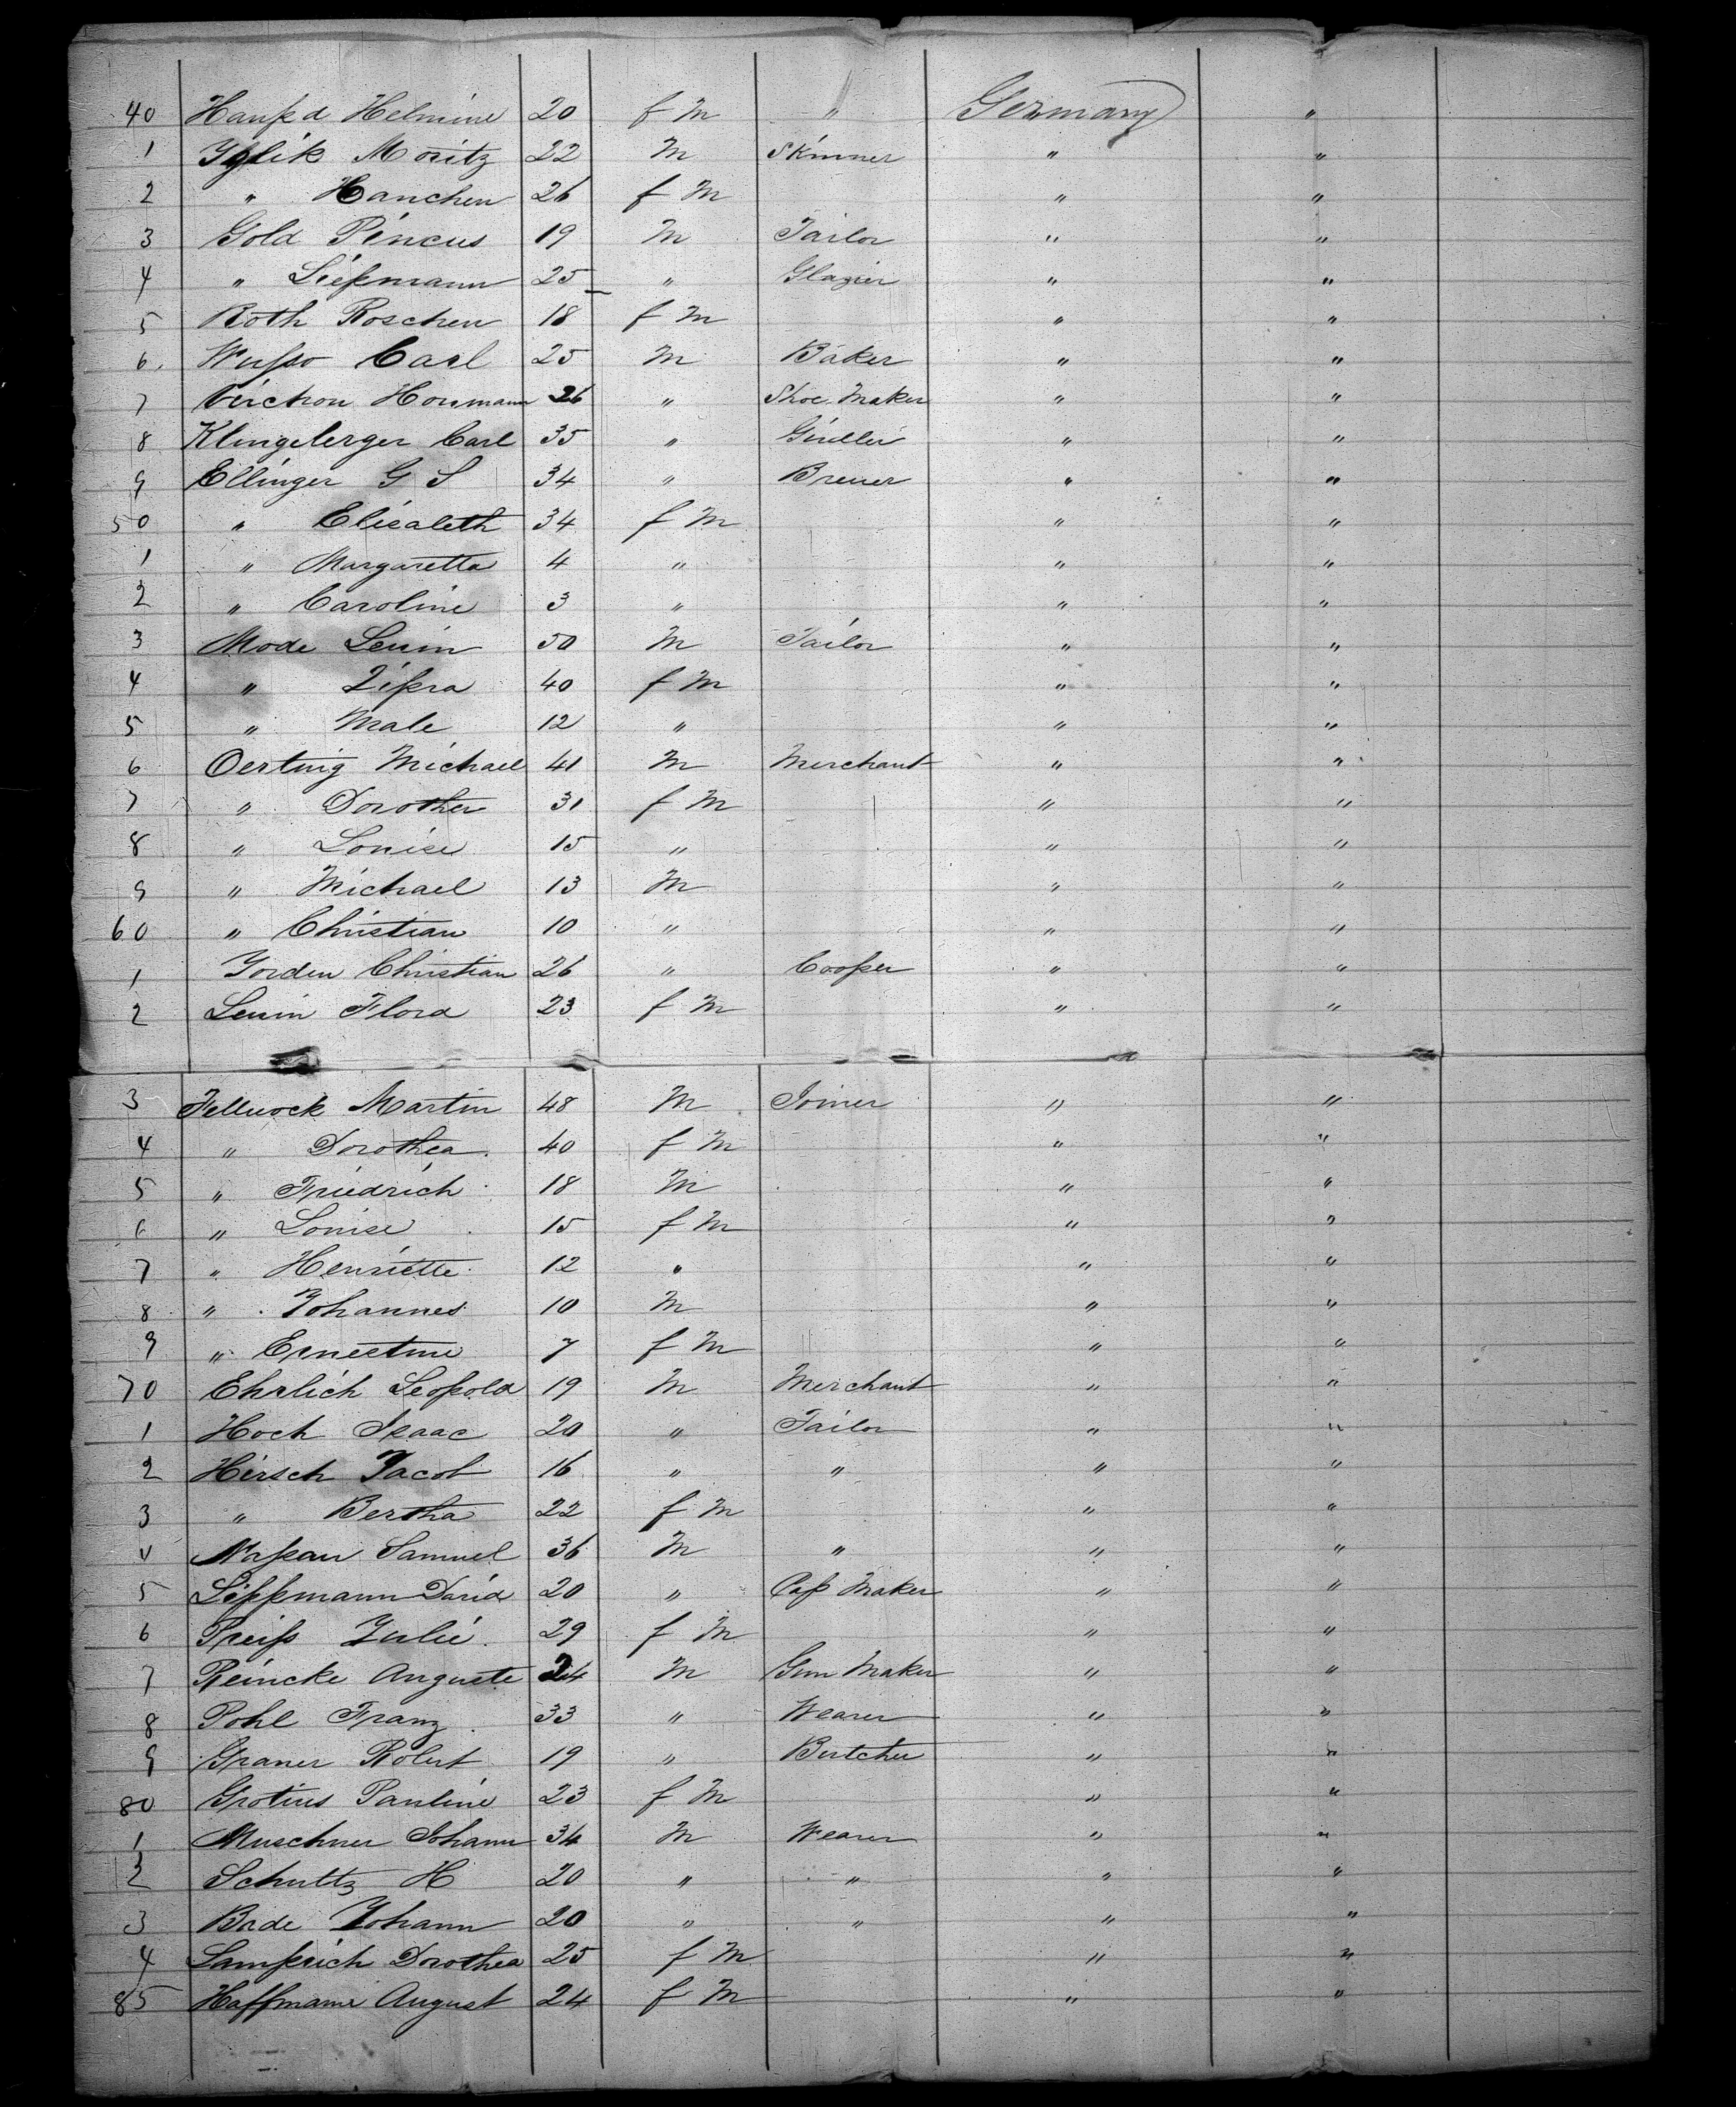 40 Haupd Helmine 20 f M " Germany "
1 Yglik Moritz 22 M Skinner " "
2 " Hanchen 26 f M " "
3 Gold Pincus 19 M Tailor " "
4 " Liepmann 25 " Glazier " "
5 Roth Roschen 18 f M " "
6. Carl 25 M Baker " "
7 Virchon Hormann 26 " Shoe Maker " "
8 Klingeberger Carl 35 " " "
9 Ellinger G S 34 " Brewer " "
50 " Elisabeth 34 f M " "
1 " Margaretta 4 " " "
2 " Caroline 3 " " "
3 Mode Lewin 50 M Tailor " "
4 " Zipra 40 f M " "
5 " Male 12 " " "
6 Oerting Michael 41 M Merchant " "
7 " Dorother 31 f M " "
8 " Louise 15 " " "
9 " Michael 13 M " "
60 " Christian 10 " " "
1 Jorden Christian 26 " Cooper " "
2 Lewin Flora 23 f M " "
3 Fellwock Martin 48 M Joiner " "
4 " Dorothea 40 f M " "
5 " Friedrich 18 M " "
6 " Louise 15 f M " "
7 " Henriette 12 " " "
8 " Johannes 10 M " "
9 " Ernestine 7 f M " "
70 Ehrlich Leopold 19 M Merchant " "
1 Hoch Isaac 20 " Tailor " "
2 Hirsch Jacob 16 " " " "
3 " Bertha 22 f M " "
4 Nassau Samuel 36 M " " "
5 Lippmann David 20 " Cap Maker " "
6 Preiss Julie 29 f M " "
7 Reincke Auguste 24 M Gun Maker " "
8 Pohl Franz 33 " Weaver " "
9 Graner Robert 19 " Butcher " "
80 Grotius Pauline 23 f M " "
1 Muschner Johann 34 M Weaver " "
2 Schultz H 20 " " " "
3 Bade Johann 20 " " " "
4 Lamprich Dorothea 25 f M " "
85 Haffmann August 24 f M " "